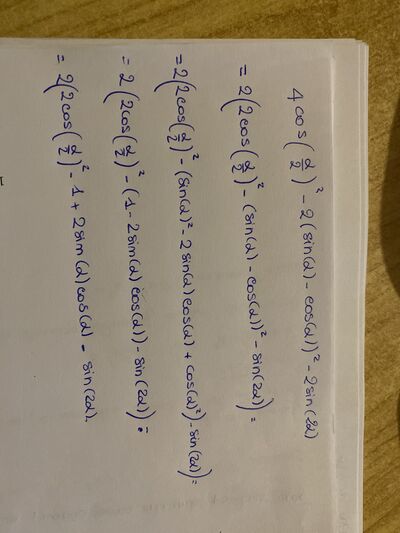 4 cos(α/2)² - 2(sin(α) - cos(α))² - 2 sin(2α)
= 2(2cos(α/2)² - (sin(α) - cos(α))² - sin(2α)) =
= 2(2cos(α/2)² - (sin(α)² - 2 sin(α) cos(α) + cos(α)²) - sin(2α)) =
= 2(2cos(α/2)² - (1 - 2 sin(α) cos(α)) - sin(2α)) =
= 2(2cos(α/2)² - 1 + 2 sin(α) cos(α) - sin(2α).